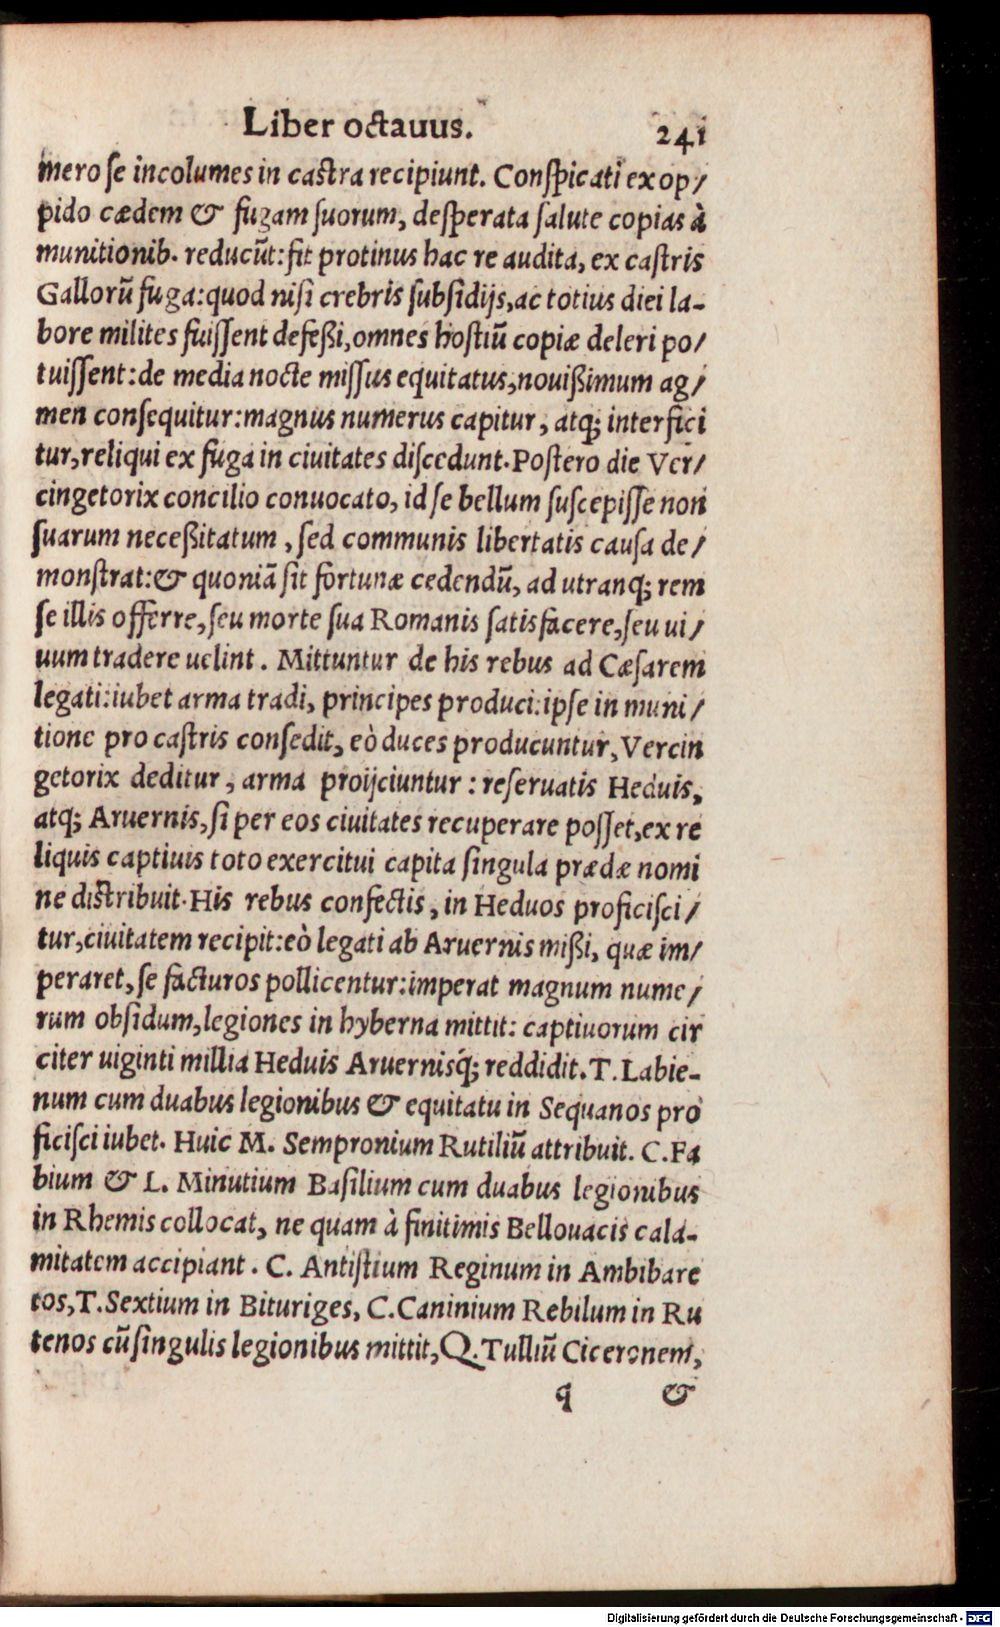 Liber octavus. 241
mero se incolumes in castra recipiunt. Conspicati ex op/
pido cædem & fugam suorum, desperata salute copias à
munitionib. reducūt: fit protinus hac re audita, ex castris
Gallorū fuga: quod nisi crebris subsidijs, ac totius diei la-
bore milites fuissent defeßi, omnes hostiū copiæ deleri po/
tuissent: de media nocte missus equitatus, nouißimum ag/
men consequitur: magnus numerus capitur, atq; interfici
tur, reliqui ex fuga in ciuitates discedunt. Postero die Ver/
cingetorix concilio conuocato, id se bellum suscepisse non
suarum neceßitatum, sed communis libertatis causa de/
monstrat: & quoniā sit fortunæ cedendū, ad utranq; rem
se illis offerre, seu morte sua Romanis satisfacere, seu ui/
uum tradere uelint. Mittuntur de his rebus ad Cæsarem
legati: iubet arma tradi, principes produci: ipse in muni/
tione pro castris consedit, eò duces producuntur, Vercin
getorix deditur, arma proijciuntur: reseruatis Heduis,
atq; Aruernis, si per eos ciuitates recuperare posset, ex re
liquis captiuis toto exercitui capita singula prædæ nomi
ne distribuit. His rebus confectis, in Heduos proficisci/
tur, ciuitatem recipit: eò legati ab Aruernis mißi, quæ im/
peraret, se facturos pollicentur: imperat magnum nume/
rum obsidum, legiones in hyberna mittit: captiuorum cir
citer uiginti millia Heduis Aruernisq́; reddidit. T. Labie-
num cum duabus legionibus & equitatu in Sequanos pro
ficisci iubet. Huic M. Sempronium Rutiliū attribuit. C. Fa
bium & L. Minutium Basilium cum duabus legionibus
in Rhemis collocat, ne quam à finitimis Bellouacis cala-
mitatem accipiant. C. Antistium Reginum in Ambibare
tos, T. Sextium in Bituriges, C. Caninium Rebilum in Ru
tenos cū singulis legionibus mittit, Q. Tulliū Ciceronem,
q &
Digitalisierung gefördert durch die Deutsche Forschungsgemeinschaft · DFG